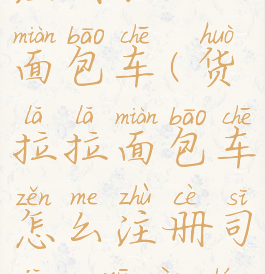 miàn bāo chē huò
面包车(货
lā lā miàn bāo chē
拉拉面包车
zěn me zhù cè sī
怎么注册司